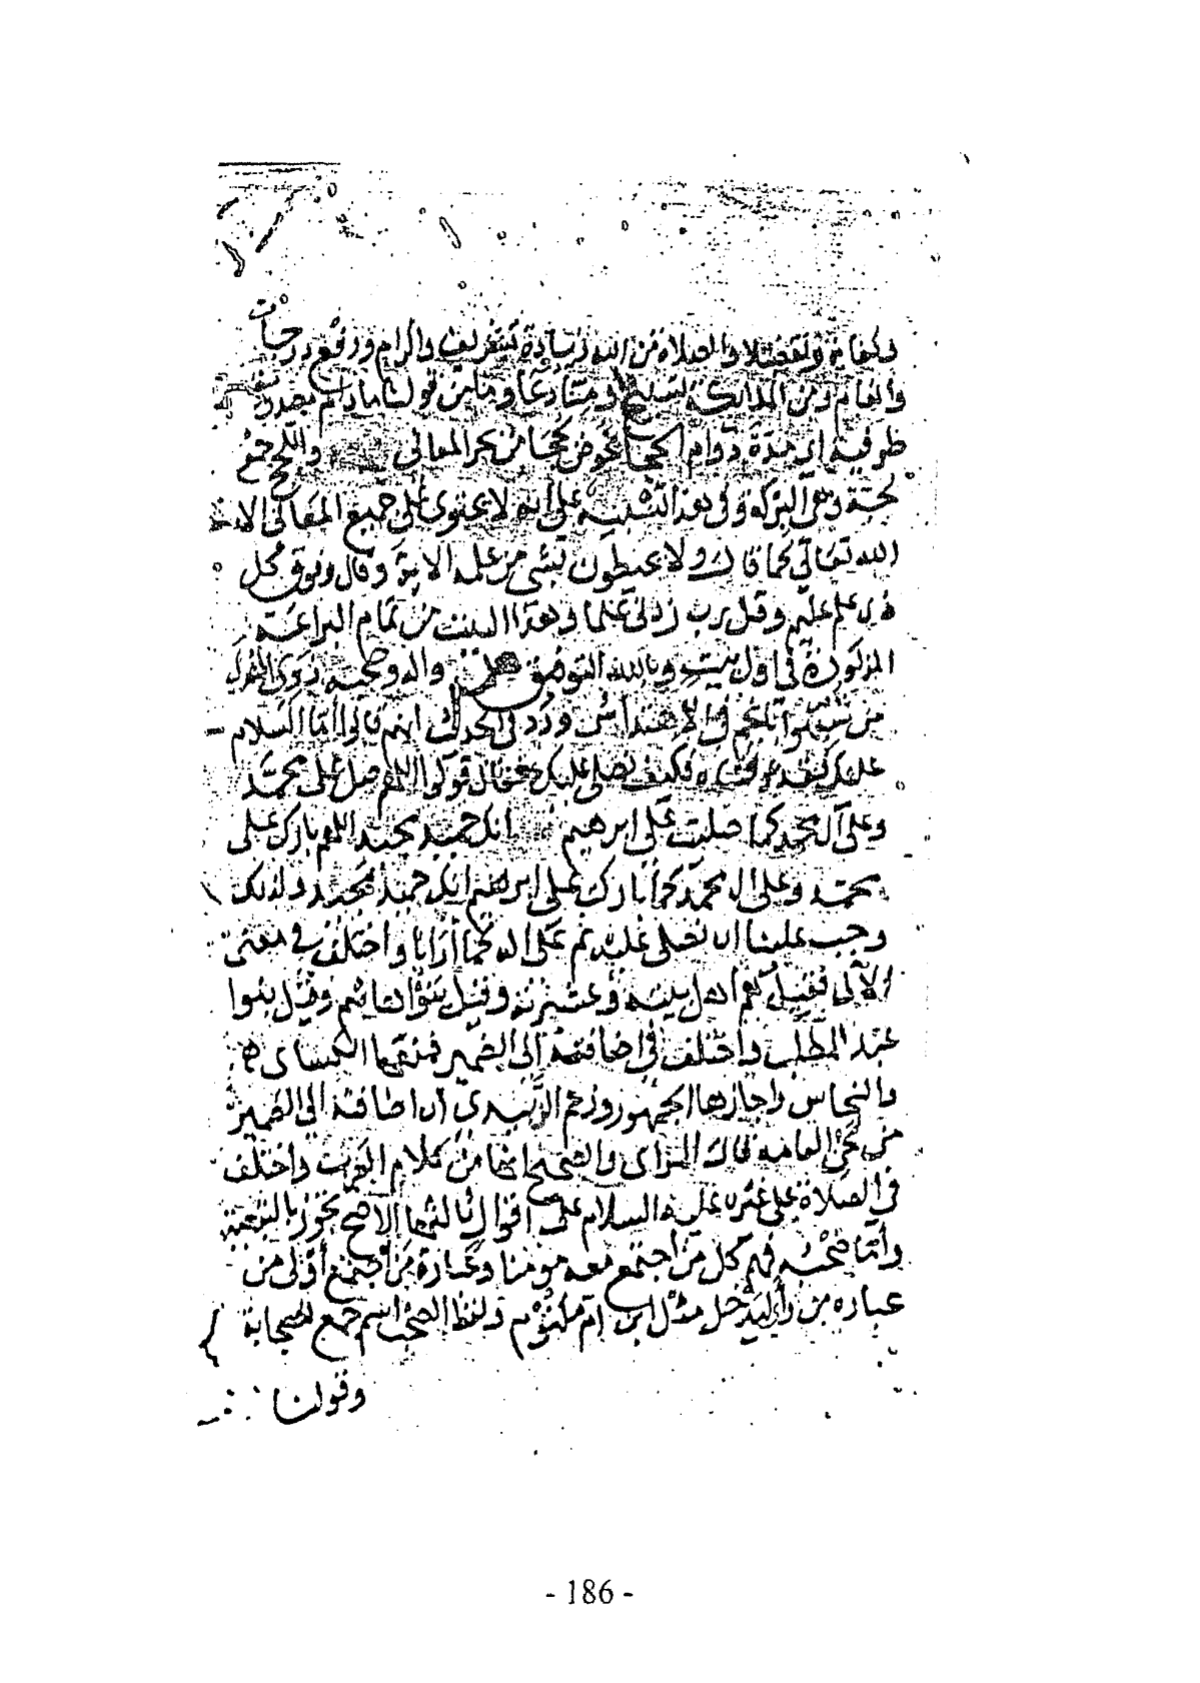 وتفضلا والصلاة من الله زيادة تشريف واكرام ورفع درجات
وانعام ومن الملائكة ومن قولنا مادام مصدرية
ظرفية اي مدة دوام الحجا يخوض لججا من بحر المعاني واللجج جمع
لجة وهي البركة وفي هذا التشبيه على انه لا يحتوي على جميع المعاني الا
الله تعالى كما قال ولا يحيطون بشي من علمه الاية وقال وفوق كل
ذي علم عليم وقل رب زدني علما وهذا البيت من تمام البراعة
المذكورة في اول بيت وبالله التوفيق واله وصحبه ذوي الهدى
من شبهوا بانجم في الاهتدا ش ورد في الحديث انهم قالوا اما السلام
عليك فقد عرفناه فكيف نصلي عليك فقال قولوا اللهم صل على محمد
وعلى آل محمد كما صليت على ابرهيم انك حميد مجيد اللهم بارك على
محمد وعلى ال محمد كما باركت على ابرهيم انك حميد مجيد ولذلك
وجب علينا ان نصلي عليه ثم على اله كما امرنا واختلف في معنى
الآل فقيل هم اهل بيته وعشيرته وقيل بنو هاشم وقيل بنوا
عبد المطلب واختلف في اضافته الى الضمير فمنعها الكساي
والنحاس واجازها الجمهور وزعم الزبيدي ان اضافته الى الضمير
من لحن العامة قال والصحيح انها من كلام العرب واختلف
في الصلاة على غيره عليه السلام على اقوال ثالثها الاصح تجوز بالتبعية
وأما صحبه فهم كل من اجتمع معه مومنا وعبارة من اجتمع أولى من
عبارة من رأى ليدخل مثل ابن ام مكتوم ولفظ الصحب اسم جمع لصحابة
وقولنا
- 186 -